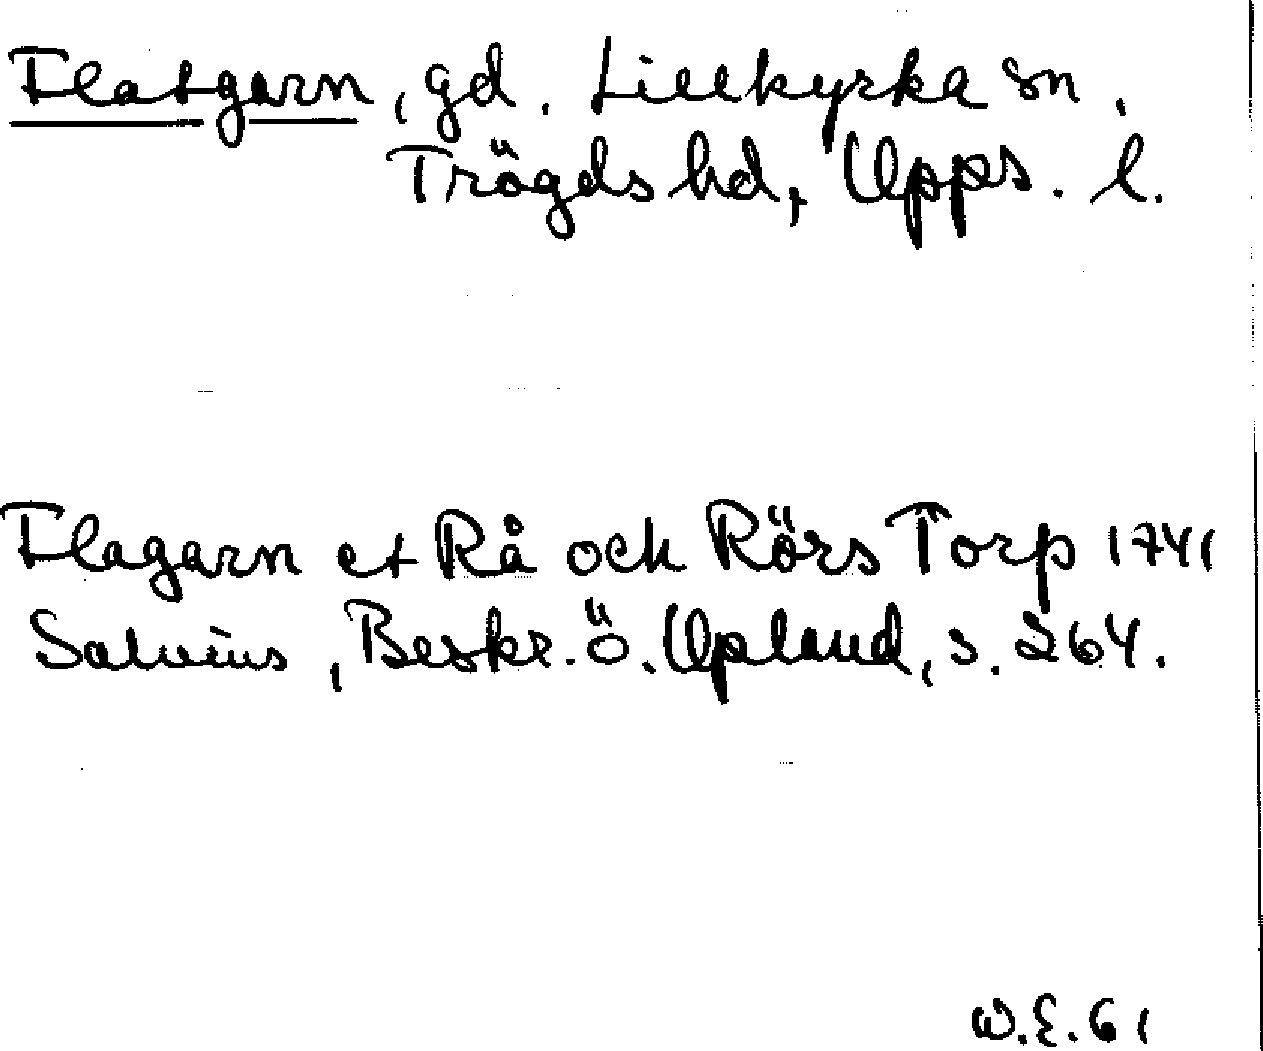 Flatgarn, gd. Lillkyrka sn,
Trögds hd, Upps. l.
Flagarn et Rå och Rörs Torp 1741
Salvius, Beskr. ö. Upland, s. 264.
W.E. 61